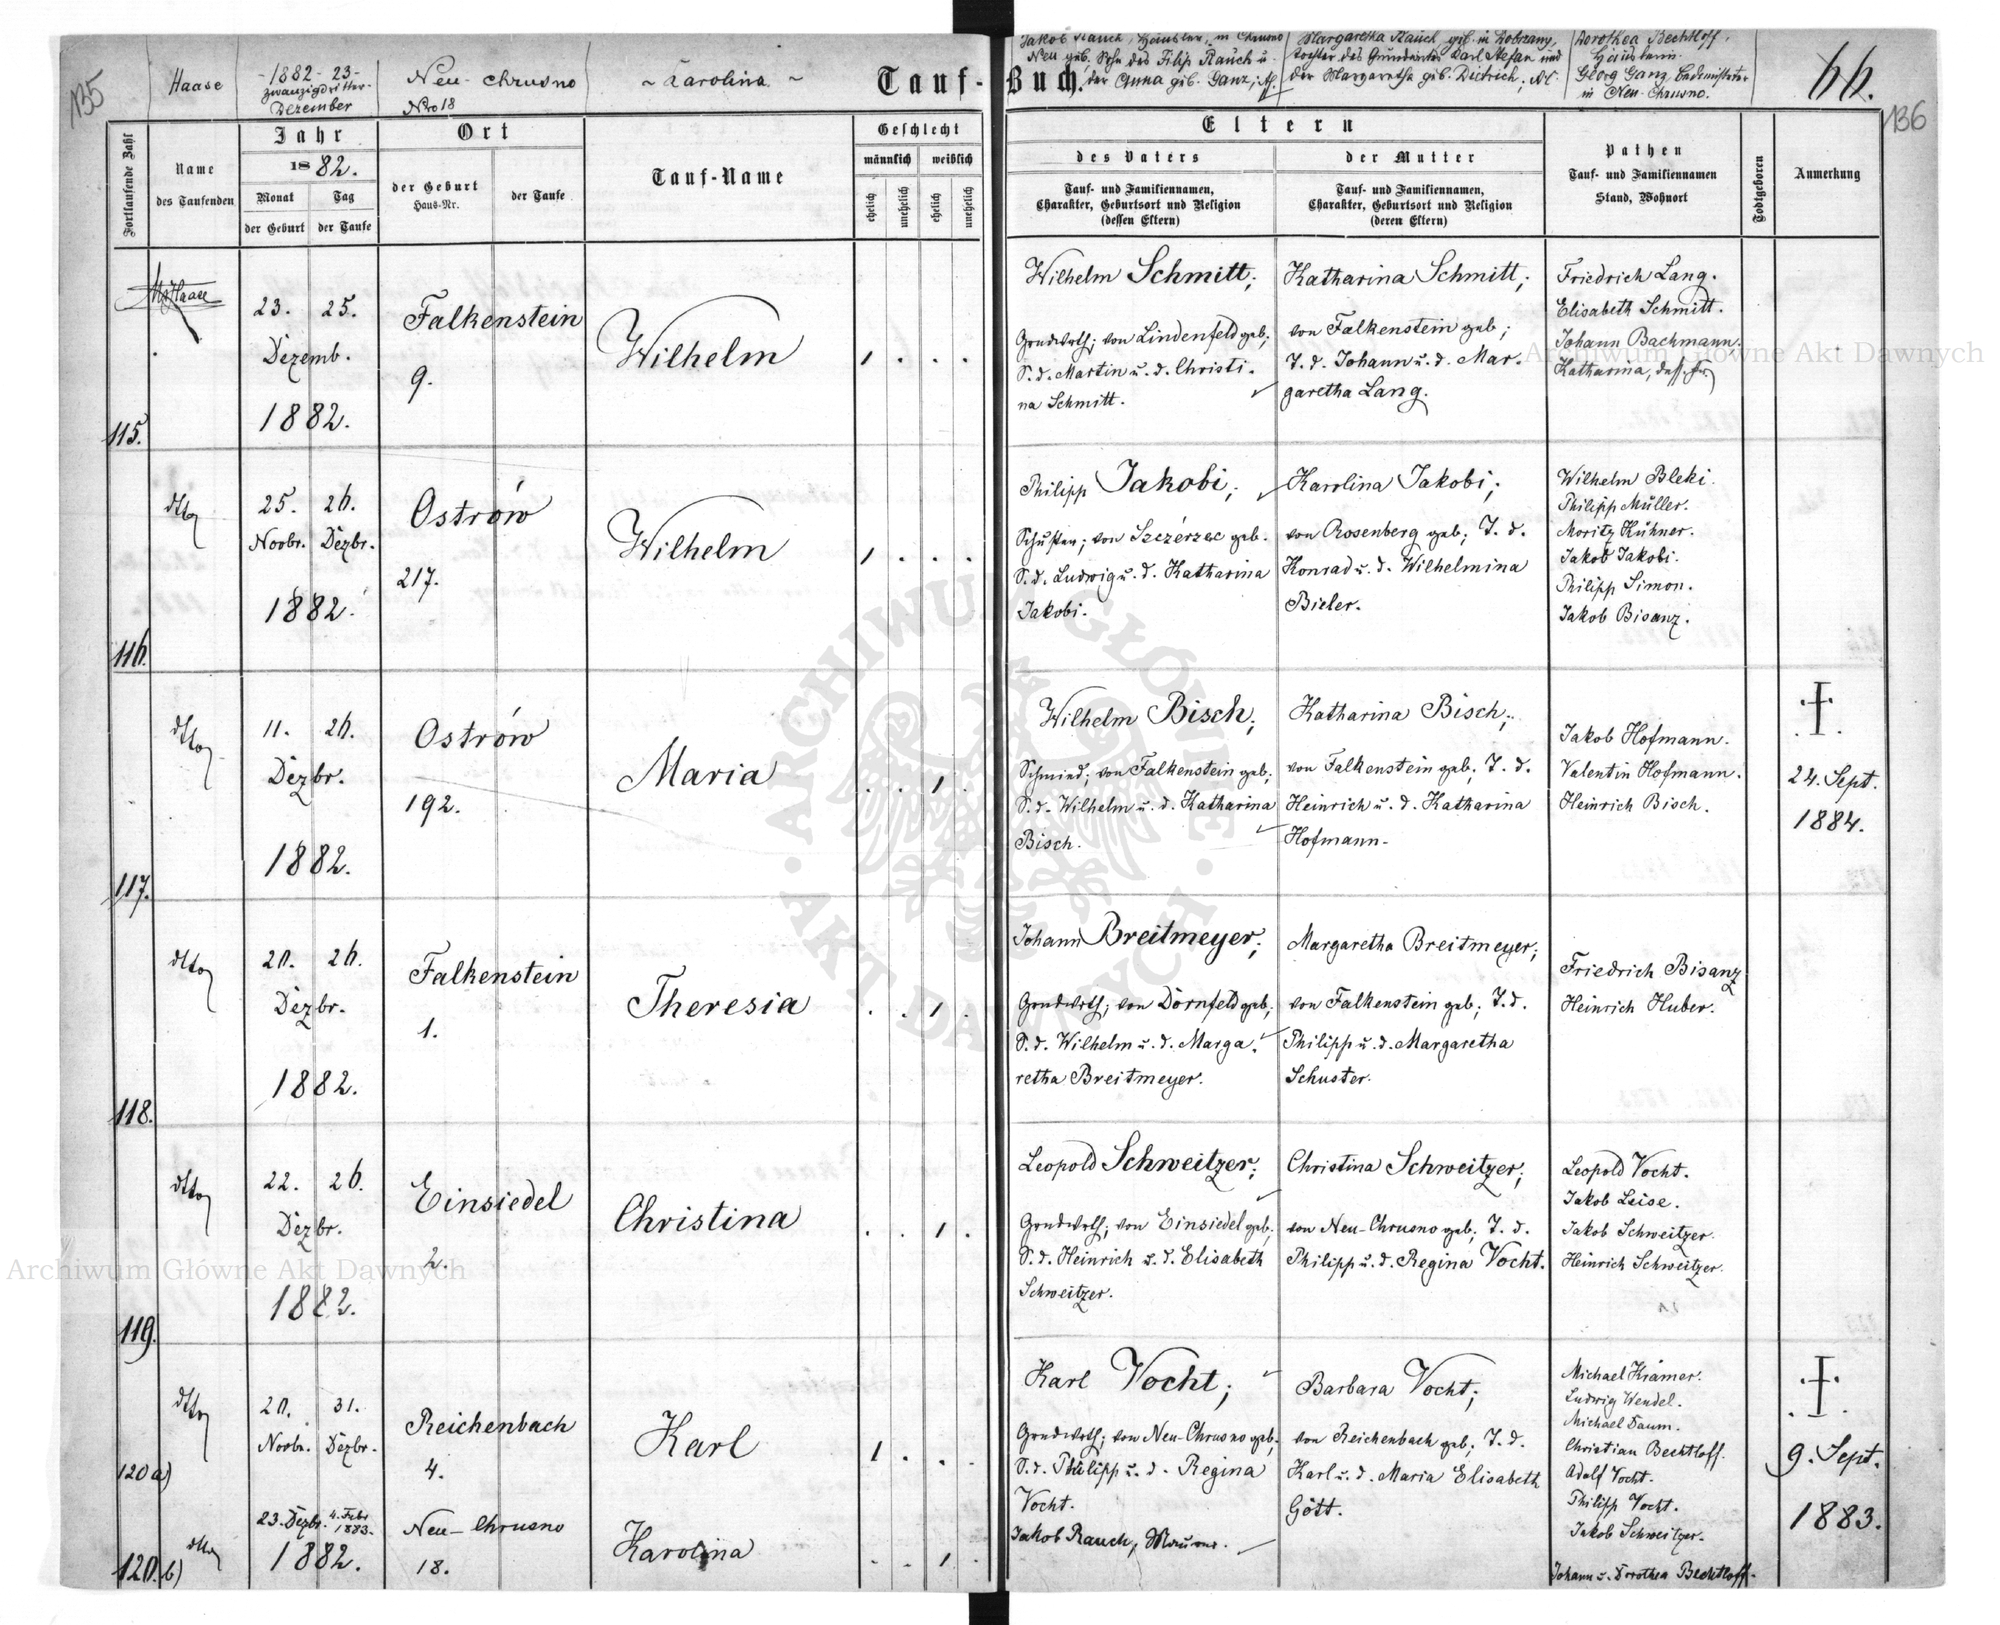 135
Haase
-1882- 23-
zwanzigdritter
Dezember
Neu - Chrusno
Nro 18
~ Karolina ~
Tauf-
Buch.
Jakob Rauch, Häusler, in Chrusno
Neu geb. Sohn des Filip Rauch u.
der Anna geb. Ganz;
Margaretha Rauch geb. in Dobrzany,
Tochter des Grundwirten Karl Stefan und
der Margaretha geb. Dietrich;
Dorothea Bechtloff,
Häuslerin
Georg Ganz
in Neu-Chrusno.
66.
136
Fortlaufende Zahl
Name
des Taufenden
Jahr
1882.
Monat
Tag
der Geburt
der Taufe
Ort
der Geburt
Haus-Nr.
der Taufe
Tauf-Name
Geschlecht
männlich
weiblich
ehelich
unehelich
ehelich
unehelich
Eltern
des Vaters
Tauf- und Familiennamen,
Charakter, Geburtsort und Religion
(dessen Eltern)
der Mutter
Tauf- und Familiennamen,
Charakter, Geburtsort und Religion
(deren Eltern)
Pathen
Tauf- und Familiennamen
Stand, Wohnort
Todtgeboren
Anmerkung
115.
Haase
23. 25.
Dezemb.
1882.
Falkenstein
9.
Wilhelm
1 . . .
Wilhelm Schmitt;
Grndwrth; von Lindenfeld geb;
S. d. Martin u. d. Christi-
na Schmitt.
Katharina Schmitt;
von Falkenstein geb;
T. d. Johann u. d. Mar-
garetha Lang.
Friedrich Lang.
Elisabeth Schmitt.
Johann Bachmann.
Katharina,
116.
dtto
25. 26.
Novbr. Dezbr.
1882.
Ostrów
217.
Wilhelm
1 . . .
Philipp Jakobi;
Schuster; von Szczérzec geb.
S. d. Ludwig u. d. Katharina
Jakobi.
Karolina Jakobi;
von Rosenberg geb; T. d.
Konrad u. d. Wilhelmina
Bieler.
Wilhelm Bleki.
Philipp Müller.
Moritz Kühner.
Jakob Jakobi.
Philipp Simon.
Jakob Bisanz.
117.
dtto
11. 26.
Dezbr.
1882.
Ostrów
192.
Maria
. . 1 .
Wilhelm Bisch;
Schmied; von Falkenstein geb;
S. d. Wilhelm u. d. Katharina
Bisch.
Katharina Bisch;
von Falkenstein geb; T. d.
Heinrich u. d. Katharina
Hofmann.
Jakob Hofmann.
Valentin Hofmann.
Heinrich Bisch.
24. Sept.
1884.
118.
dtto
20. 26.
Dezbr.
1882.
Falkenstein
1.
Theresia
. . 1 .
Johann Breitmeyer;
Grndwrth; von Dornfeld geb;
S. d. Wilhelm u. d. Marga-
retha Breitmeyer.
Margaretha Breitmeyer;
von Falkenstein geb; T. d.
Philipp u. d. Margaretha
Schuster.
Friedrich Bisanz
Heinrich Huber.
119.
dtto
22. 26.
Dezbr.
1882.
Einsiedel
2.
Christina
. . 1 .
Leopold Schweitzer;
Grndwrth; von Einsiedel geb;
S. d. Heinrich u. d. Elisabeth
Schweitzer.
Christina Schweitzer;
von Neu-Chrusno geb; T. d.
Philipp u. d. Regina Vocht.
Leopold Vocht.
Jakob Leise.
Jakob Schweitzer.
Heinrich Schweitzer.
120 a)
dtto
20. 31.
Novbr. Dezbr.
Reichenbach
4.
Karl
1 . . .
Karl Vocht;
Grndwrth; von Neu-Chrusno geb;
S. d. Philipp u. d. Regina
Vocht.
Barbara Vocht;
von Reichenbach geb; T. d.
Karl u. d. Maria Elisabeth
Gött.
Michael Krämer.
Ludwig Wendel.
Michael Daum.
Christian Bechtloff.
Adolf Vocht.
Philipp Vocht.
Jakob Schweitzer.
9. Sept.
1883.
120. b)
dtto
23. Dezbr. 4. Febr
1883.
1882.
Neu-Chrusno
18.
Karolina
. . 1 .
Jakob Rauch,
Johann u. Dorothea Bechtloff.
Archiwum Główne Akt Dawnych
Archiwum Główne Akt Dawnych
· ARCHIWUM GŁÓWNE · AKT DAWNYCH ·